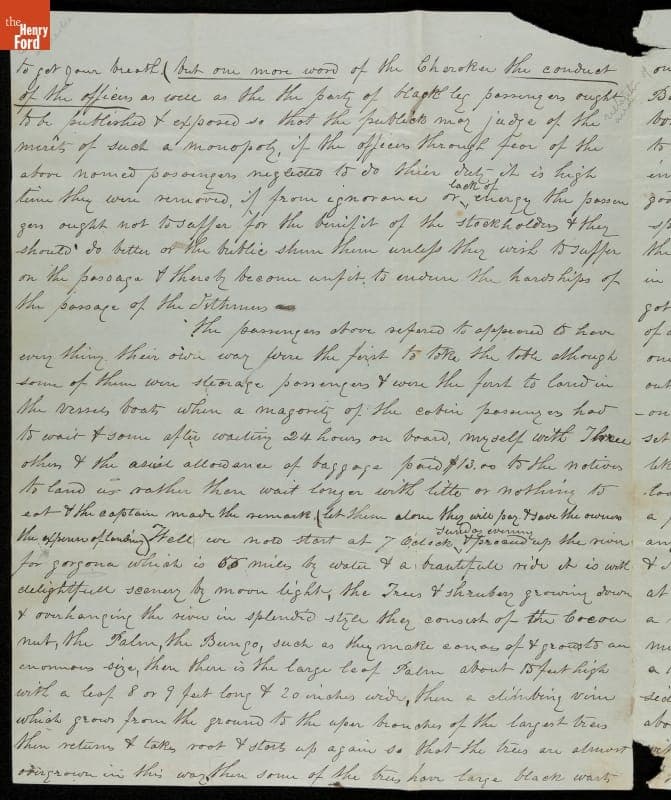 the
Henry
Ford
to get your breath (but one more word of the Cherokee the conduct
of the officers as well as the the party of black leg passengers ought
to be published & exposed so that the publick may judge of the
merits of such a monopoly, if the officers through fear of the
above named passengers neglected to do thier duty it is high
time they were removed, if from ignorance or lack of energy the passen
gers ought not to suffer for the binifit of the stockholders & they
should do better or the public shun them unless they wish to suffer
on the passage & thereby become unfit to endure the hardships of
the passage of the Isthmus
The passengers above refered to appeared to have
every thing their own way were the first to take the table although
some of them were stearage passengers & were the first to land in
the vessels boats when a magority of the cabin passengers had
to wait & some after waiting 24 hours on board, myself with Three
others & the allowance of baggage paid $13.00 to the natives
to land us rather than wait longer with litte or nothing to
eat & the captain made the remark (let them alone they will pay & save the owners
the expense of landing) Well we now start at 7 Oclock Sunday evening & proceed up the river
for gorgona which is miles by water & a beautifull ride it is with
delightfull scenery by moon light, the Trees & shrubery growing down
& overhanging the river in splendid style they consist of the Cocoa
nut, the Palm, the Bungo, such as they make canoes of & grows to an
enormous size, then there is the large leaf Palm about 15 feet high
with a leaf 8 or 9 feet long & 20 inches wide, then a climbing vine
which grows from the ground to the uper branches of the largest trees
then returns & takes root & starts up again so that the trees are almost
overgrown in this way, then some of the trees have large black warts